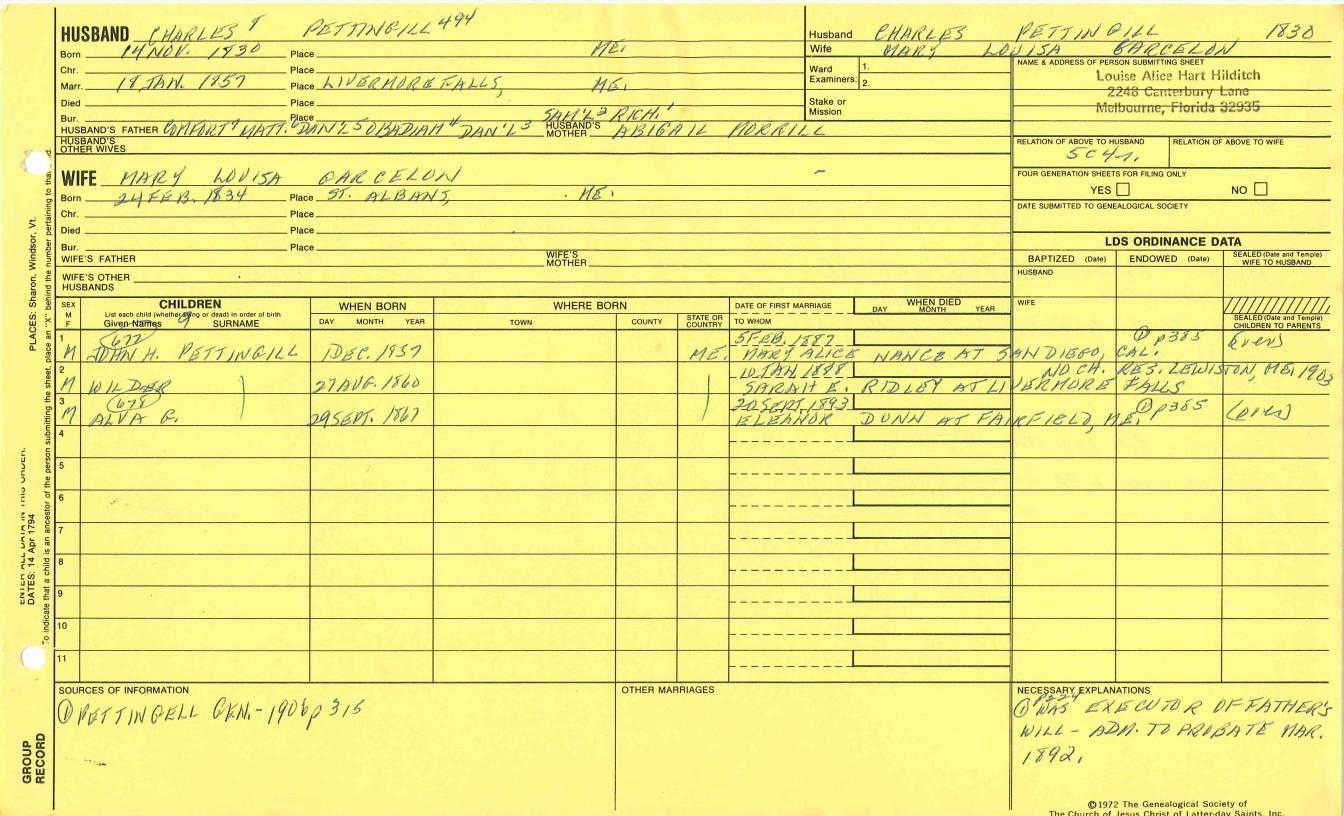 HUSBAND CHARLES 8 PETTINGILL 494
Born 14 NOV. 1830 Place ME.
Chr. Place
Marr. 18 JAN. 1857 Place LIVERMORE FALLS, ME.
Died Place
Bur. Place
SAM'L 2 RICH. 1
HUSBAND'S FATHER COMFORT 7 MATT. 6 DAN'L 5 OBADIAH 4 DAN'L 3 HUSBAND'S MOTHER ABIGAIL MORRILL
HUSBAND'S OTHER WIVES
WIFE MARY LOUISA GARCELON
Born 24 FEB. 1834 Place ST. ALBANS, ME.
Chr. Place
Died Place
Bur. Place
WIFE'S FATHER WIFE'S MOTHER
WIFE'S OTHER HUSBANDS
Husband CHARLES PETTINGILL 1830
Wife MARY LOUISA GARCELON
Ward Examiners: 1.
2.
Stake or Mission
NAME & ADDRESS OF PERSON SUBMITTING SHEET
Louise Alice Hart Hilditch
2248 Canterbury Lane
Melbourne, Florida 32935
RELATION OF ABOVE TO HUSBAND RELATION OF ABOVE TO WIFE
5C4r.
FOUR GENERATION SHEETS FOR FILING ONLY
YES NO
DATE SUBMITTED TO GENEALOGICAL SOCIETY
LDS ORDINANCE DATA
BAPTIZED (Date) ENDOWED (Date) SEALED (Date and Temple) WIFE TO HUSBAND
HUSBAND
WIFE
SEALED (Date and Temple) CHILDREN TO PARENTS
SEX M F
CHILDREN
List each child (whether living or dead) in order of birth
Given Names 9 SURNAME
WHEN BORN
DAY MONTH YEAR
WHERE BORN
TOWN COUNTY STATE OR COUNTRY
DATE OF FIRST MARRIAGE
TO WHOM
WHEN DIED
DAY MONTH YEAR
1 M 672 JOHN H. PETTINGILL 1 DEC. 1857 ME. 5 FEB. 1887
MARY ALICE NANCE AT SAN DIEGO, CAL. ① p385 (over)
2 M WILDER 27 AUG. 1860 10 JAN. 1898 NO CH. RES. LEWISTON, ME. 1903
SARAH E. RIDLEY AT LIVERMORE FALLS
3 M 673 ALVA G. 29 SEPT. 1867 20 SEPT. 1893
ELEANOR DUNN AT FAIRFIELD, ME. ① p385 (over)
4
5
6
7
8
9
10
11
SOURCES OF INFORMATION
① PETTINGELL GEN.-1906 p 315
OTHER MARRIAGES
NECESSARY EXPLANATIONS
① WAS EXECUTOR OF FATHER'S
WILL - ADM. TO PROBATE MAR.
1892.
©1972 The Genealogical Society of
The Church of Jesus Christ of Latter-day Saints, Inc.
PLACES: Sharon, Windsor, Vt.
ENTER ALL DATA IN THIS ORDER:
DATES: 14 Apr 1794
To indicate that a child is an ancestor of the person submitting the sheet, place an "X" behind the number pertaining to that
GROUP RECORD